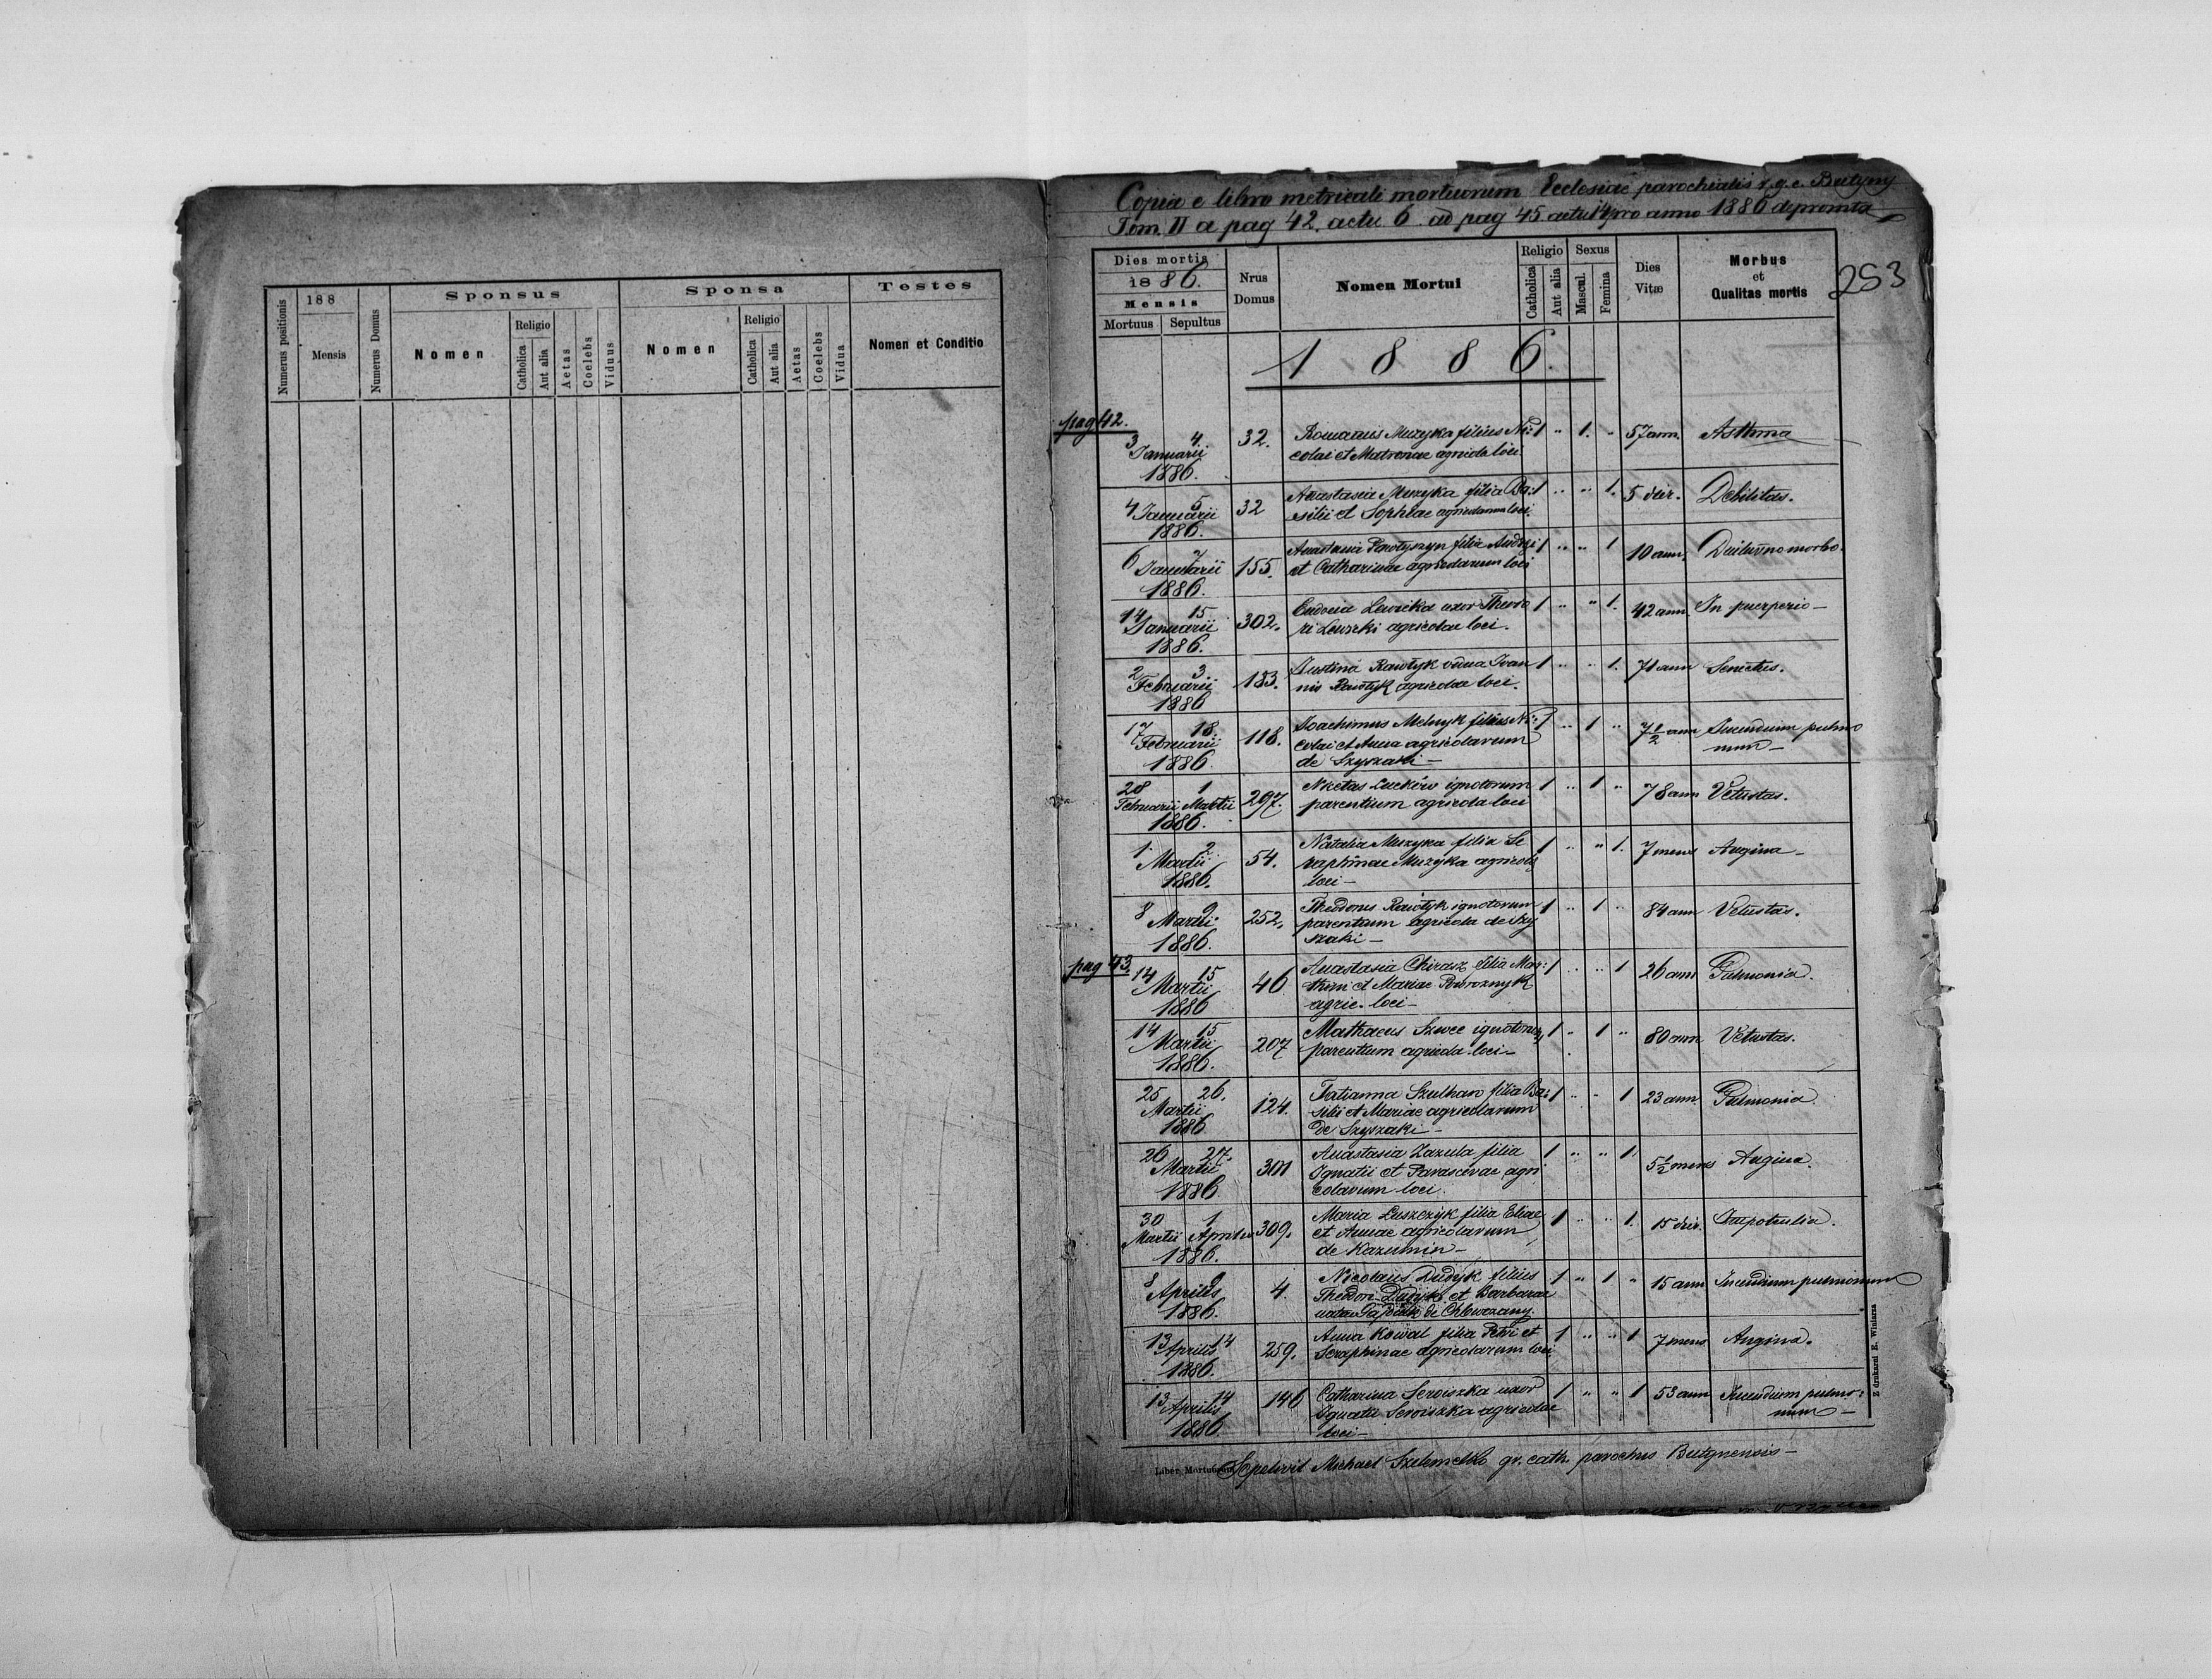 Numerus positionis
188
Mensis
Numerus Domus
Sponsus
Nomen
Religio
Catholica
Aut alia
Aetas
Coelebs
Viduus
Sponsa
Nomen
Religio
Catholica
Aut alia
Aetas
Coelebs
Vidua
Testes
Nomen et Conditio
Copia e libro metricali mortuorum Ecclesiae parochialis r.g.c. Butyny
Tom. II a pag 42. actu 6 ad pag 45. actu 14 pro anno 1886 depromta
253
Dies mortis
1886.
Mensis
Mortuus Sepultus
Nrus
Domus
Nomen Mortui
Religio
Catholica
Aut alia
Sexus
Mascul.
Femina
Dies
Vitæ
Morbus
et
Qualitas mortis
1 8 8 6.
pag 42.
3 4 32. Romanus Muzyka filius Ni: 1 " 1. " 57 ann. Asthma
Januarii colai et Matronae agricola loci.
1886.
4 5 32 Anastasia Muzyka filia Ba: 1 " " 1. 5 dier. Debilitas.
Januarii silii et Sophiae agricolarum loci.
1886.
6 7 155. Anastasia filia Andrei 1 " " 1 10 ann. morbo.
Januarii et Catharinae agricolarum loci
1886.
14 15 302. Eudocia Lewicka uxor Theodo 1 " " 1. 42 ann. In puerperio
Januarii ri agricolae loci.
1886.
2 3. 183. Justina Rawłyk vidua Joan 1 " " 1. 71 ann Senectus.
Februarii nis Rawłyk agricolae loci.
1886
17 18. 118. Joachimus Melnyk filius Ni: 1 " 1 " 7 1/2 ann Incendium pulmo
Februarii colai et Anna agricolarum num
1886. de Szyszaki
28 1 297. Nicetas Luckiw ignotorum 1 " 1 " 78 ann Vetustas.
Februarii Martii parentium agricola loci
1886.
1 2 54. Natalia Muzyka filia Se 1 " " 1. 7 mens Angina
Martii raphinae Muzyka agricolae
1886. loci
8 9 252. Theodorus Rawłyk ignotorum 1 " 1 " 84 ann Vetustas.
Martii parentum agricola de Szy
1886. szaki
pag 43.
14 15 46 Anastasia Chirasz filia Mar: 1 " " 1 26 ann Pulmonia.
Martii et Mariae Powroznyk
1886 agric. loci
14 15 207 Mathaeus Szwec ignotorum 1 " 1 " 80 ann Vetustas.
Martii parentium agricola loci
1886.
25 26. 124. Tatianna Szulhan filia Ba: 1 " " 1 23 ann. Pulmonia
Martii silii et Mariae agricolarum
1886 de Szyszaki
26 27. 301 Anastasia Zazula filia 1 " " 1. 5 1/2 mens Angina.
Martii Ignatii et Parascevae agri
1886 colarum loci.
30 1 309. Maria Luszczyk filia Eliae 1 " " 1. 15 dier.
Martii Aprilis et Annae agricolarum
1886. de Kazumin
8 9 4. Nicolaus Dudyk filius 1 " 1 " 15 ann Incendium pulmonum
Aprilis Theodori Dudyk et Barbarae
1886. natae de Chlewczany.
13 14 259. Anna Kowal filia Petri et 1 " " 1 7 mens Angina.
Aprilis Seraphinae agricolarum loci
1886.
13 14 146 Catharina Seroiszka uxor 1 " " 1 53 ann Incendium pulmo:
Aprilis Ignatii Seroiszka agricolae num
1886. loci
Liber Mortuorum.
Sepelivit Michael Szelemetko gr. cath. parochus Butynensis
Z drukarni E. Winiarza